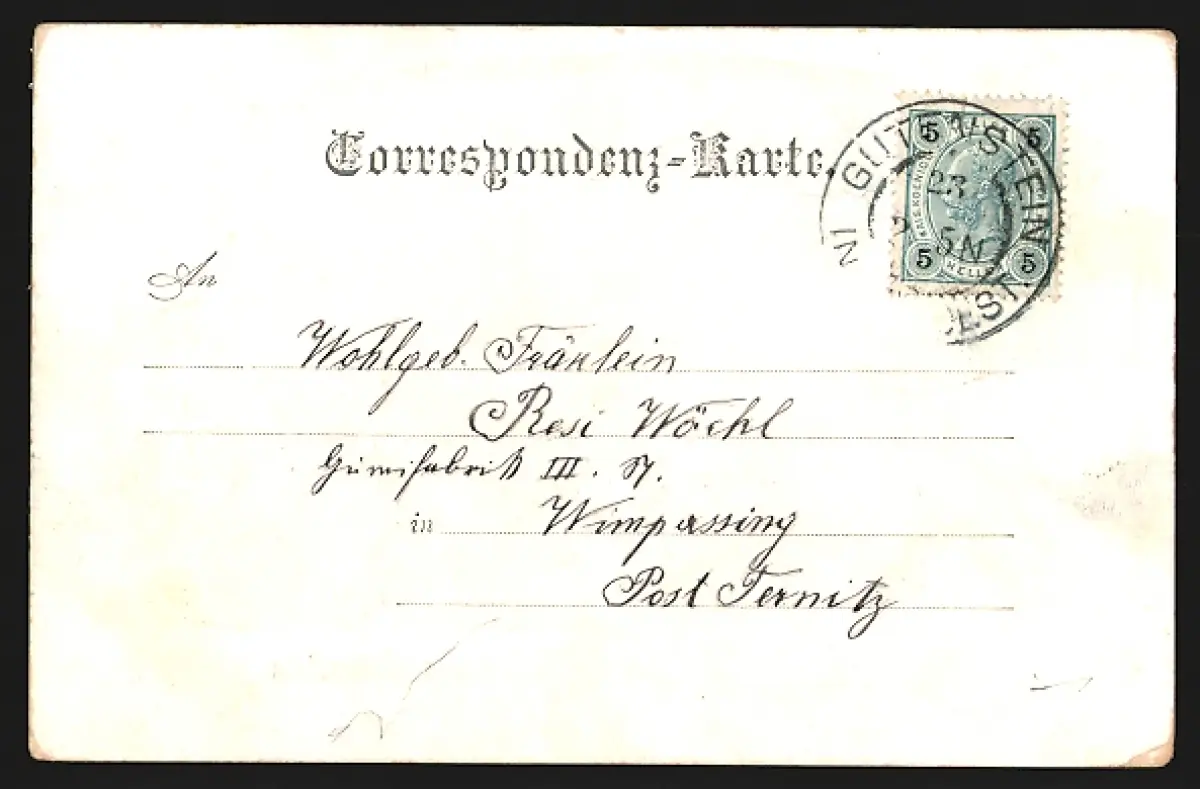 Correspondenz-Karte.
5 5
KAIS. KOENIGL
5 HELLER 5
IN GUTENSTEIN
23
5N
OEST.
An
Wohlgeb. Fräulein
Resi Wöchl
Gumifabrik III. St.
in Wimpassing
Post Ternitz